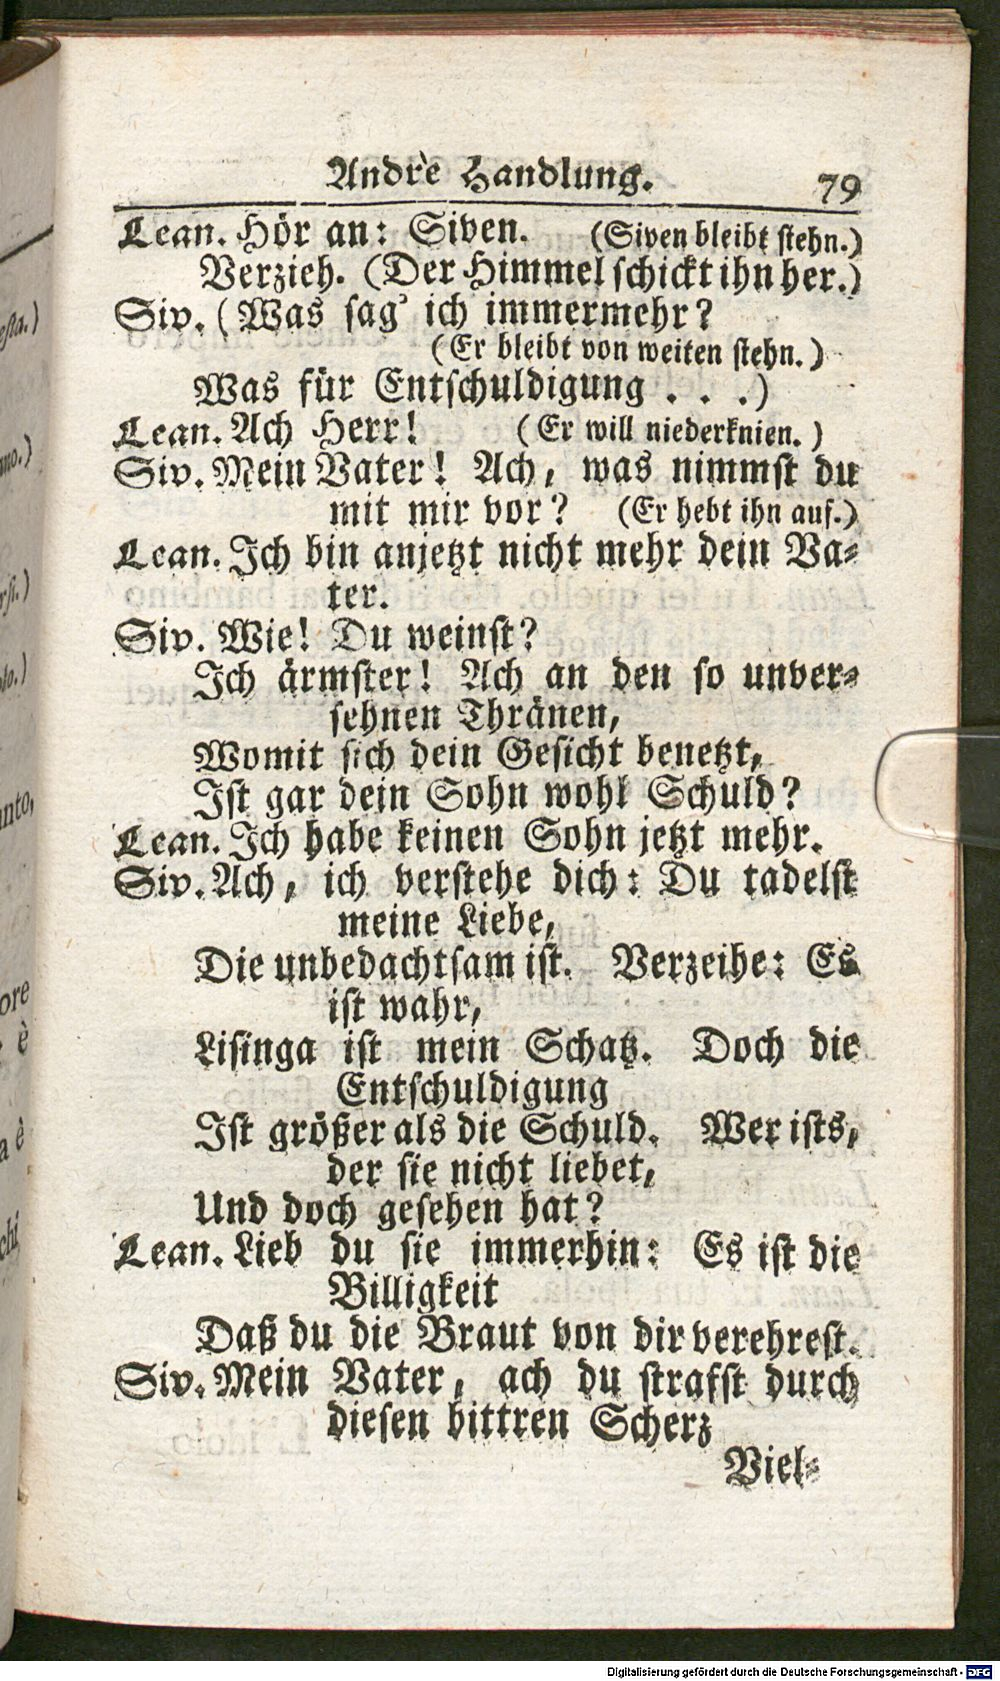 Andre Handlung. 79
Lean. Hör an: Siven. (Siven bleibt stehn.)
Verzieh. (Der Himmel schickt ihn her.)
Siv. (Was sag' ich immermehr?
(Er bleibt von weiten stehn.)
Was für Entschuldigung . . .)
Lean. Ach Herr! (Er will niederknien.)
Siv. Mein Vater! Ach, was nimmst du
mit mir vor? (Er hebt ihn auf.)
Lean. Ich bin anjetzt nicht mehr dein Va-
ter.
Siv. Wie! Du weinst?
Ich ärmster! Ach an den so unver-
sehnen Thränen,
Womit sich dein Gesicht benetzt,
Ist gar dein Sohn wohl Schuld?
Lean. Ich habe keinen Sohn jetzt mehr.
Siv. Ach, ich verstehe dich: Du tadelst
meine Liebe,
Die unbedachtsam ist. Verzeihe: Es
ist wahr,
Lisinga ist mein Schatz. Doch die
Entschuldigung
Ist größer als die Schuld. Wer ists,
der sie nicht liebet,
Und doch gesehen hat?
Lean. Lieb du sie immerhin: Es ist die
Billigkeit
Daß du die Braut von dir verehrest.
Siv. Mein Vater, ach du strafst durch
diesen bittren Scherz
Viel-
Digitalisierung gefördert durch die Deutsche Forschungsgemeinschaft - DFG